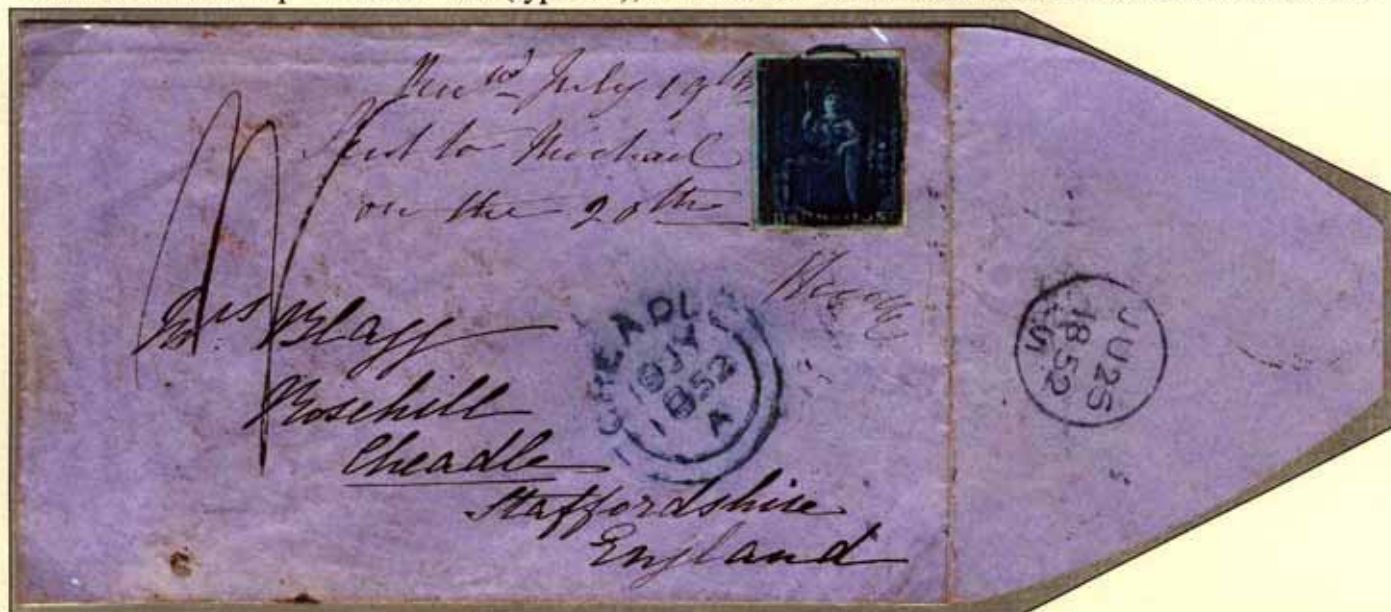 July 19th
Sent to Michael
on the 20th
BARBADOS
Mrs Blagg
Rosehill
Cheadle
Staffordshire
England
CHEADLE
19 JY
1852
A
JU 25
1852